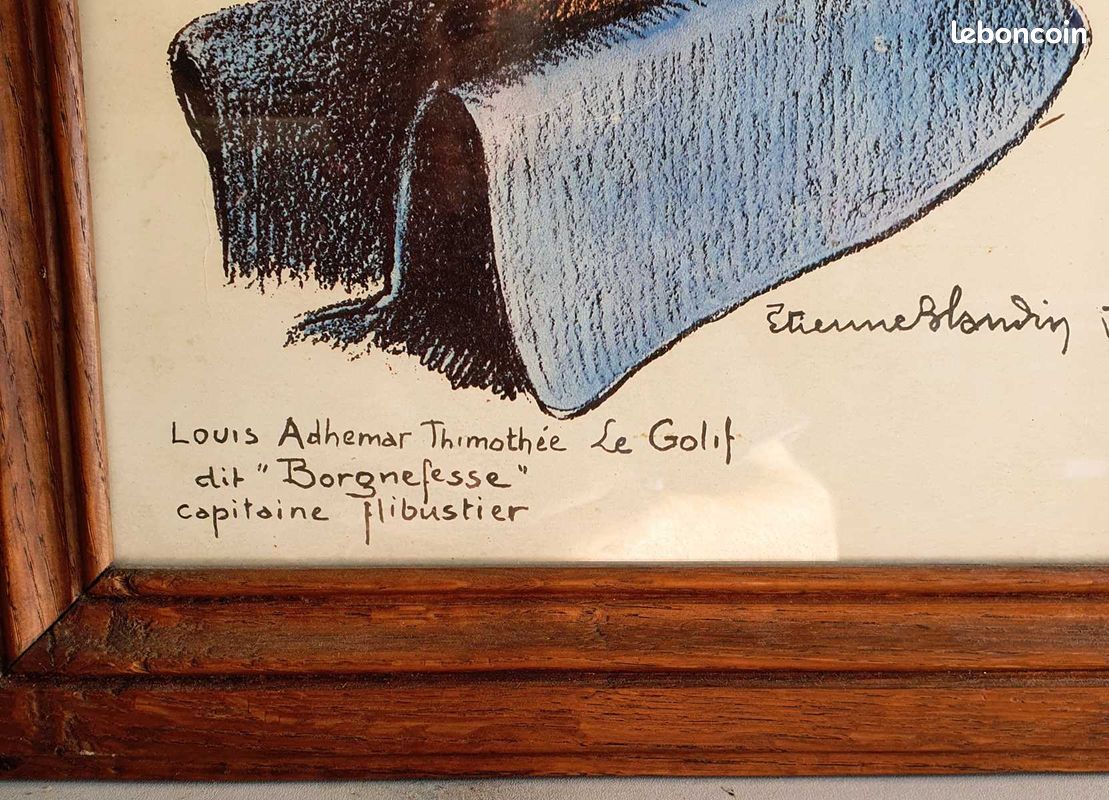 leboncoin
Etienne Blandin
Louis Adhemar Thimothée Le Golif
dit "Borgnefesse"
capitaine flibustier